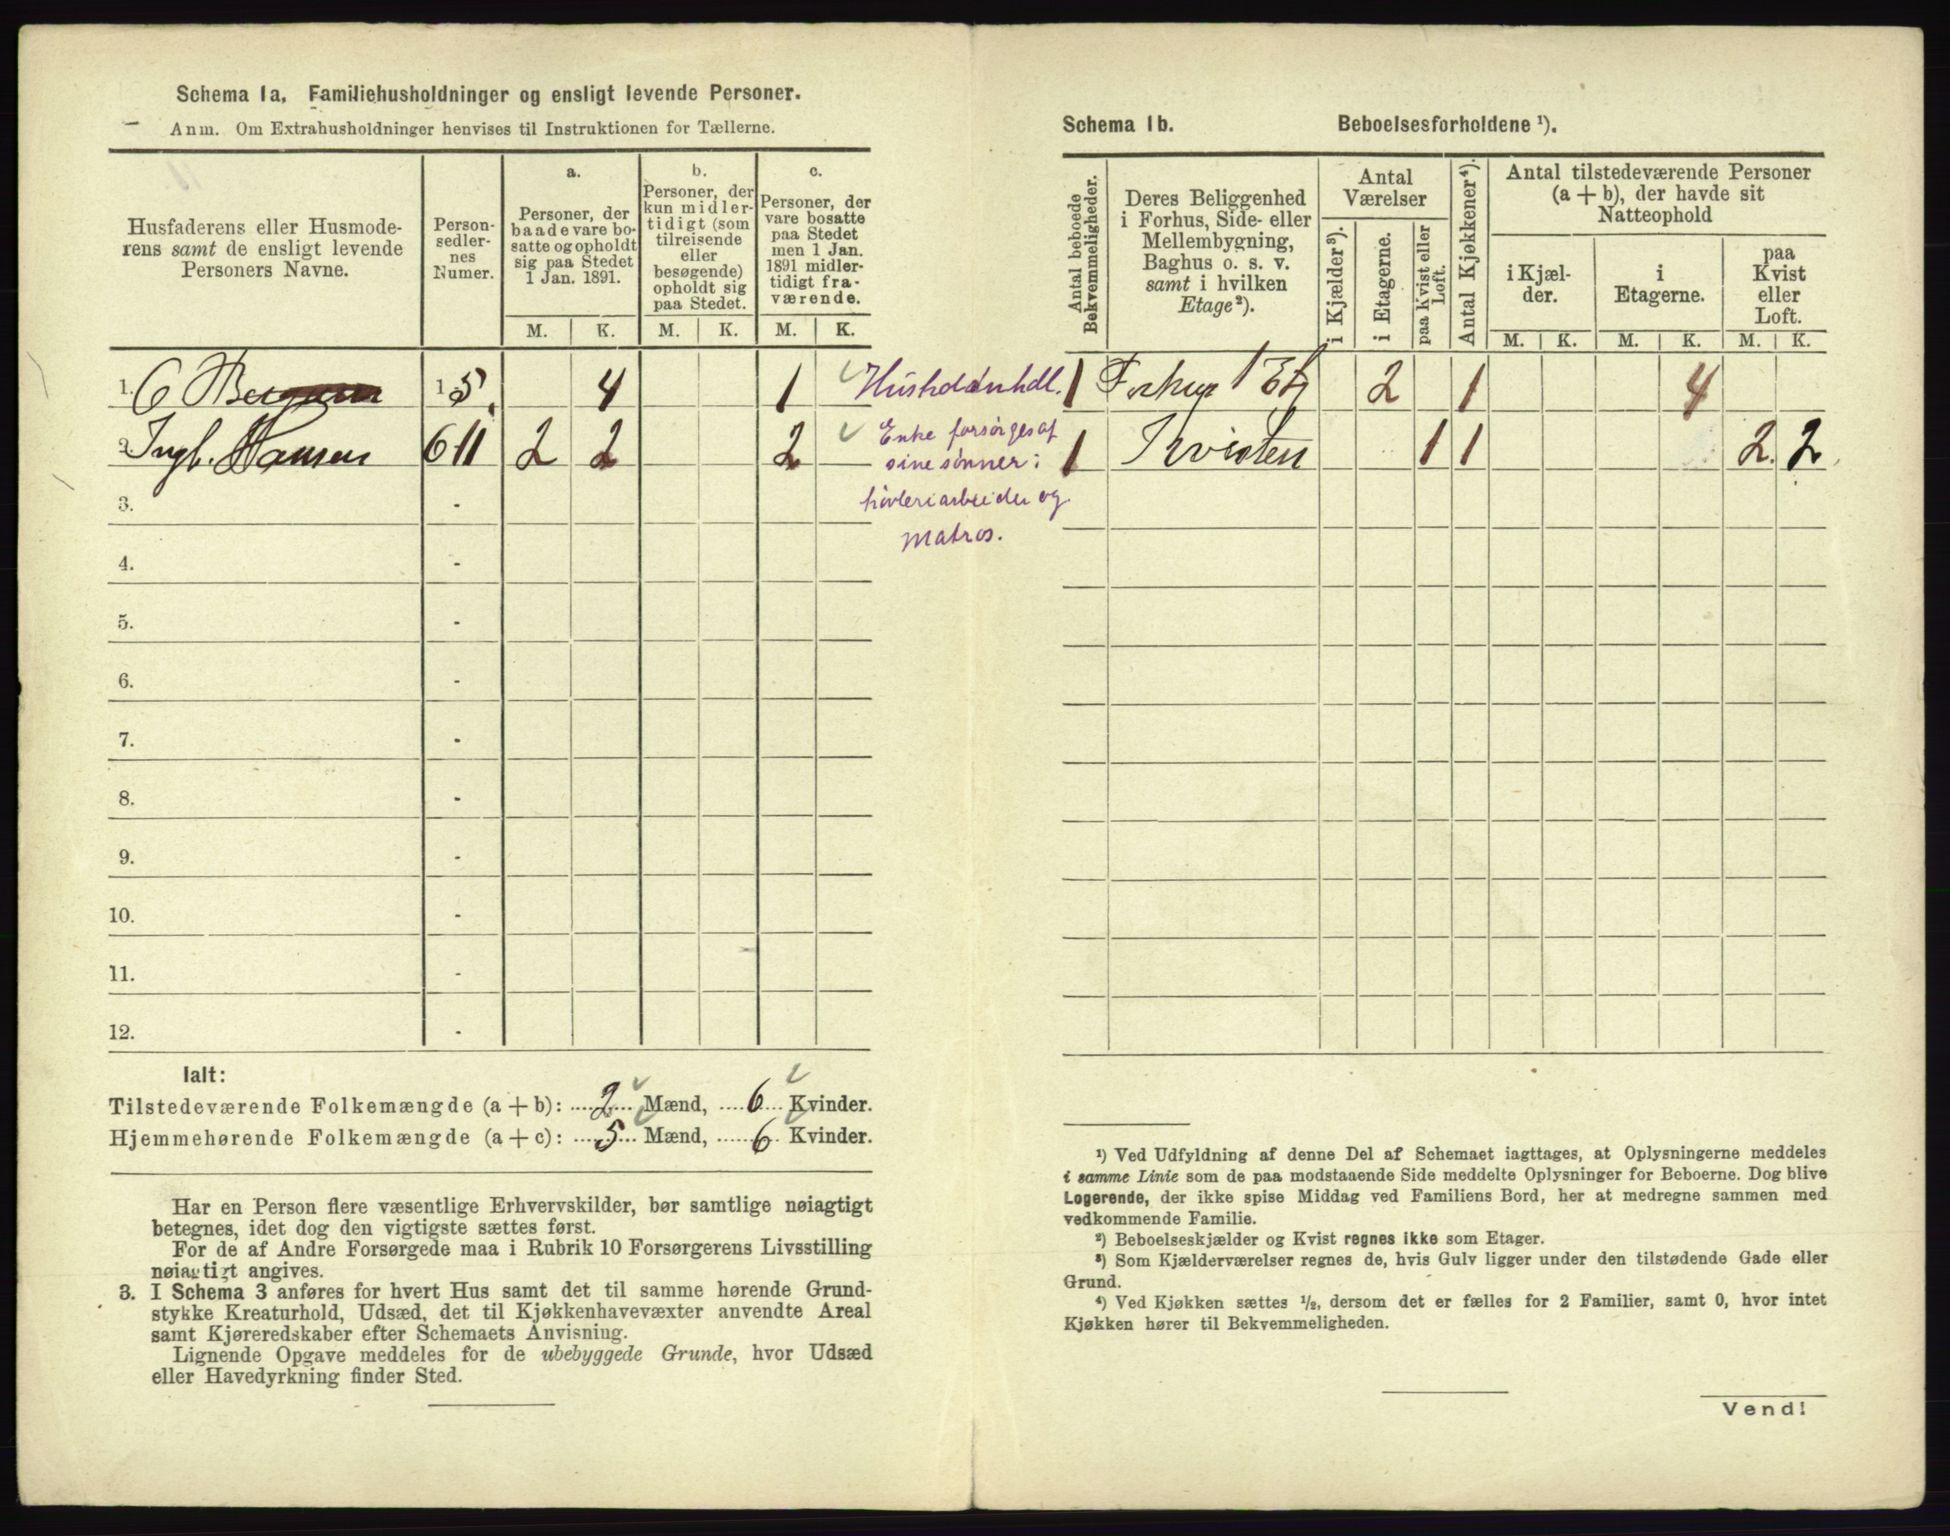 Schema 1a. Familiehusholdninger og ensligt levende Personer.
Anm. Om Extrahusholdninger henvises til Instruktionen for Tællerne.
Husfaderens eller Husmode-
rens samt de ensligt levende
Personers Navne.
Person-
sedler-
nes
Numer.
a.
Personer, der
baade vare bo-
satte og opholdt
sig paa Stedet
1 Jan. 1891.
b.
Personer, der
kun midler-
tidigt (som
tilreisende
eller
besøgende)
opholdt sig
paa Stedet.
c.
Personer, der
vare bosatte
paa Stedet
men 1 Jan.
1891 midler-
tidigt fra-
værende.
M. K. M. K. M. K.
1. C Bergersen 1-5. 4 1
2. Ingb. Hansen 6-11 2 2 2
3. -
4. -
5. -
6. -
7. -
8. -
9. -
10. -
11. -
12. -
Enke forsørges af
sine sønner:
høvleriarbeider og
Matros.
Ialt:
Tilstedeværende Folkemængde (a + b): 2 Mænd, 6 Kvinder.
Hjemmehørende Folkemængde (a + c): 5 Mænd, 6 Kvinder.
Har en Person flere væsentlige Erhvervskilder, bør samtlige nøiagtigt
betegnes, idet dog den vigtigste sættes først.
For de af Andre Forsørgede maa i Rubrik 10 Forsørgerens Livsstilling
nøiagtigt angives.
3. I Schema 3 anføres for hvert Hus samt det til samme hørende Grund-
stykke Kreaturhold, Udsæd, det til Kjøkkenhavevæxter anvendte Areal
samt Kjøreredskaber efter Schemaets Anvisning.
Lignende Opgave meddeles for de ubebyggede Grunde, hvor Udsæd
eller Havedyrkning finder Sted.
Schema 1b. Beboelsesforholdene ¹).
Antal beboede
Bekvemmeligheder.
Deres Beliggenhed
i Forhus, Side- eller
Mellembygning,
Baghus o. s. v.
samt i hvilken
Etage²).
Antal
Værelser
i Kjælder³).
i Etagerne.
paa Kvist eller
Loft.
Antal Kjøkkener⁴).
Antal tilstedeværende Personer
(a + b), der havde sit
Natteophold
i Kjæl-
der.
i
Etagerne.
paa
Kvist
eller
Loft.
M. K. M. K. M. K.
1 Forhus 1 Etg 2 1 4
1 Kvisten 1 1 2 2
¹) Ved Udfyldning af denne Del af Schemaet iagttages, at Oplysningerne meddeles
i samme Linie som de paa modstaaende Side meddelte Oplysninger for Beboerne. Dog blive
Logerende, der ikke spise Middag ved Familiens Bord, her at medregne sammen med
vedkommende Familie.
²) Beboelseskjælder og Kvist regnes ikke som Etager.
³) Som Kjælderværelser regnes de, hvis Gulv ligger under den tilstødende Gade eller
Grund.
⁴) Ved Kjøkken sættes ½, dersom det er fælles for 2 Familier, samt 0, hvor intet
Kjøkken hører til Bekvemmeligheden.
Vend!